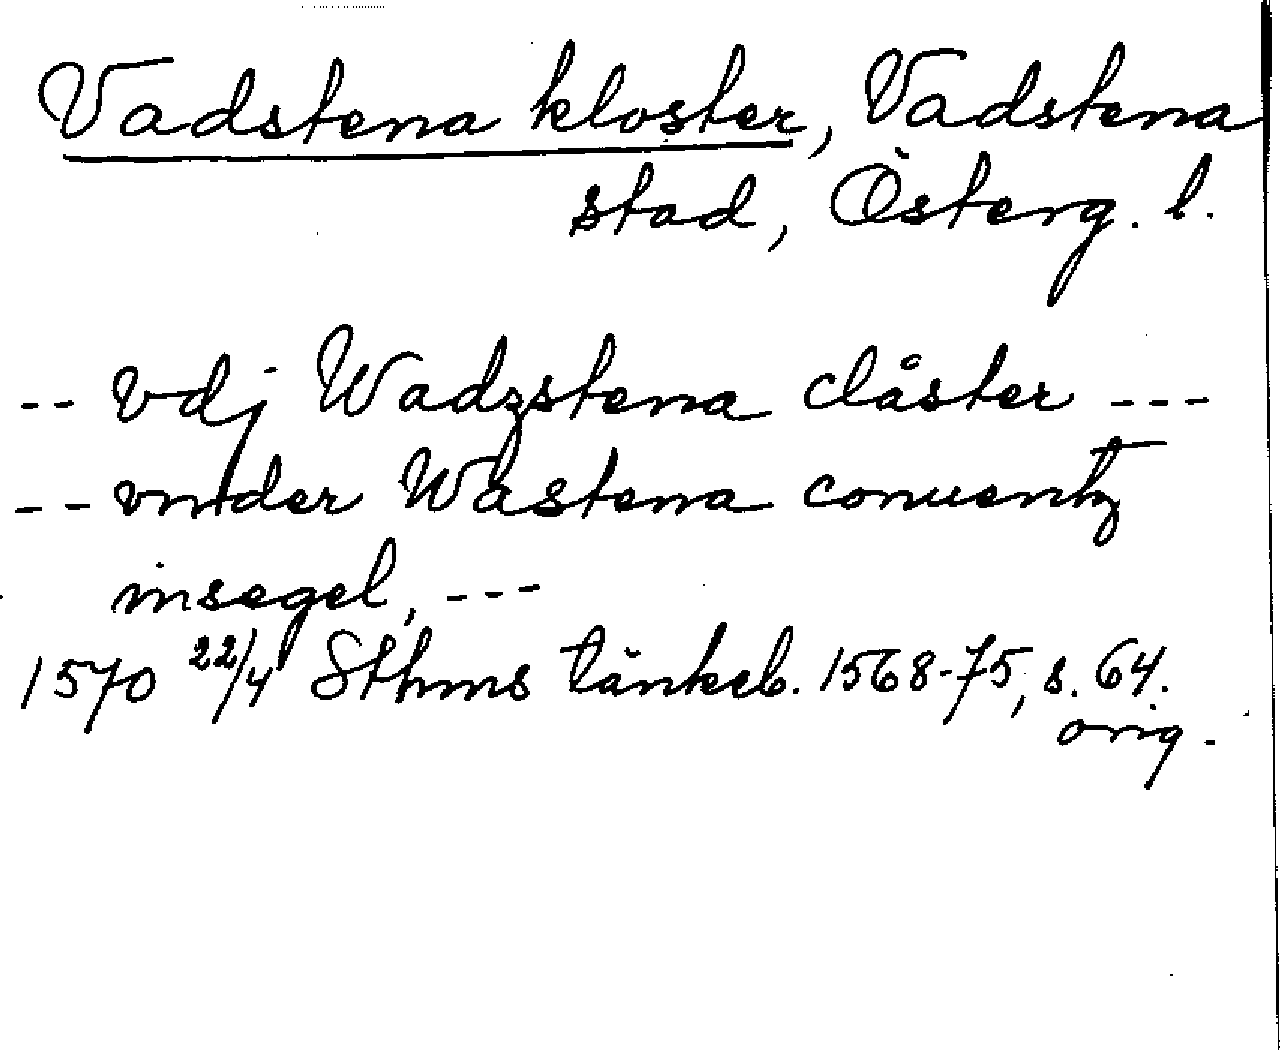 Vadstena kloster, Vadstena
stad, Österg. l.
-- vdj Wadzstena clåster ---
-- vnder Wastena conuentz
insegel, ---
1570 22/4 Sthms tänkeb. 1568-75, s. 64.
orig.